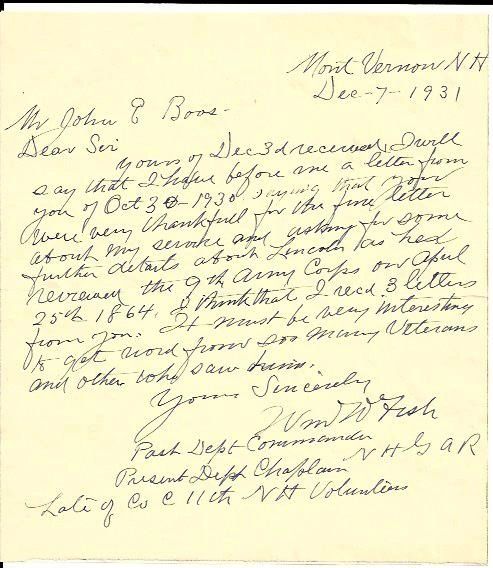 Mont Vernon N H
Dec-7-1931
Mr John E Boos-
Dear Sir
yours of Dec 3d received, I will
say that I have before me a letter from
you of Oct 30-1930, saying that you
were very thankfull for the fine letter
about my service and asking for some
further details about Lincoln as hed
reviewed the 9th Army Corps on April
25th 1864. I think that I recd 3 letters
from you. It must be very interesting
to get word from soo many Veterans
and other who saw him.
Yours Sincerely
Wm W Fish
Past Dept Commander
Present Dept Chaplain N H G A R
Late of Co C 11th N H Volunteers